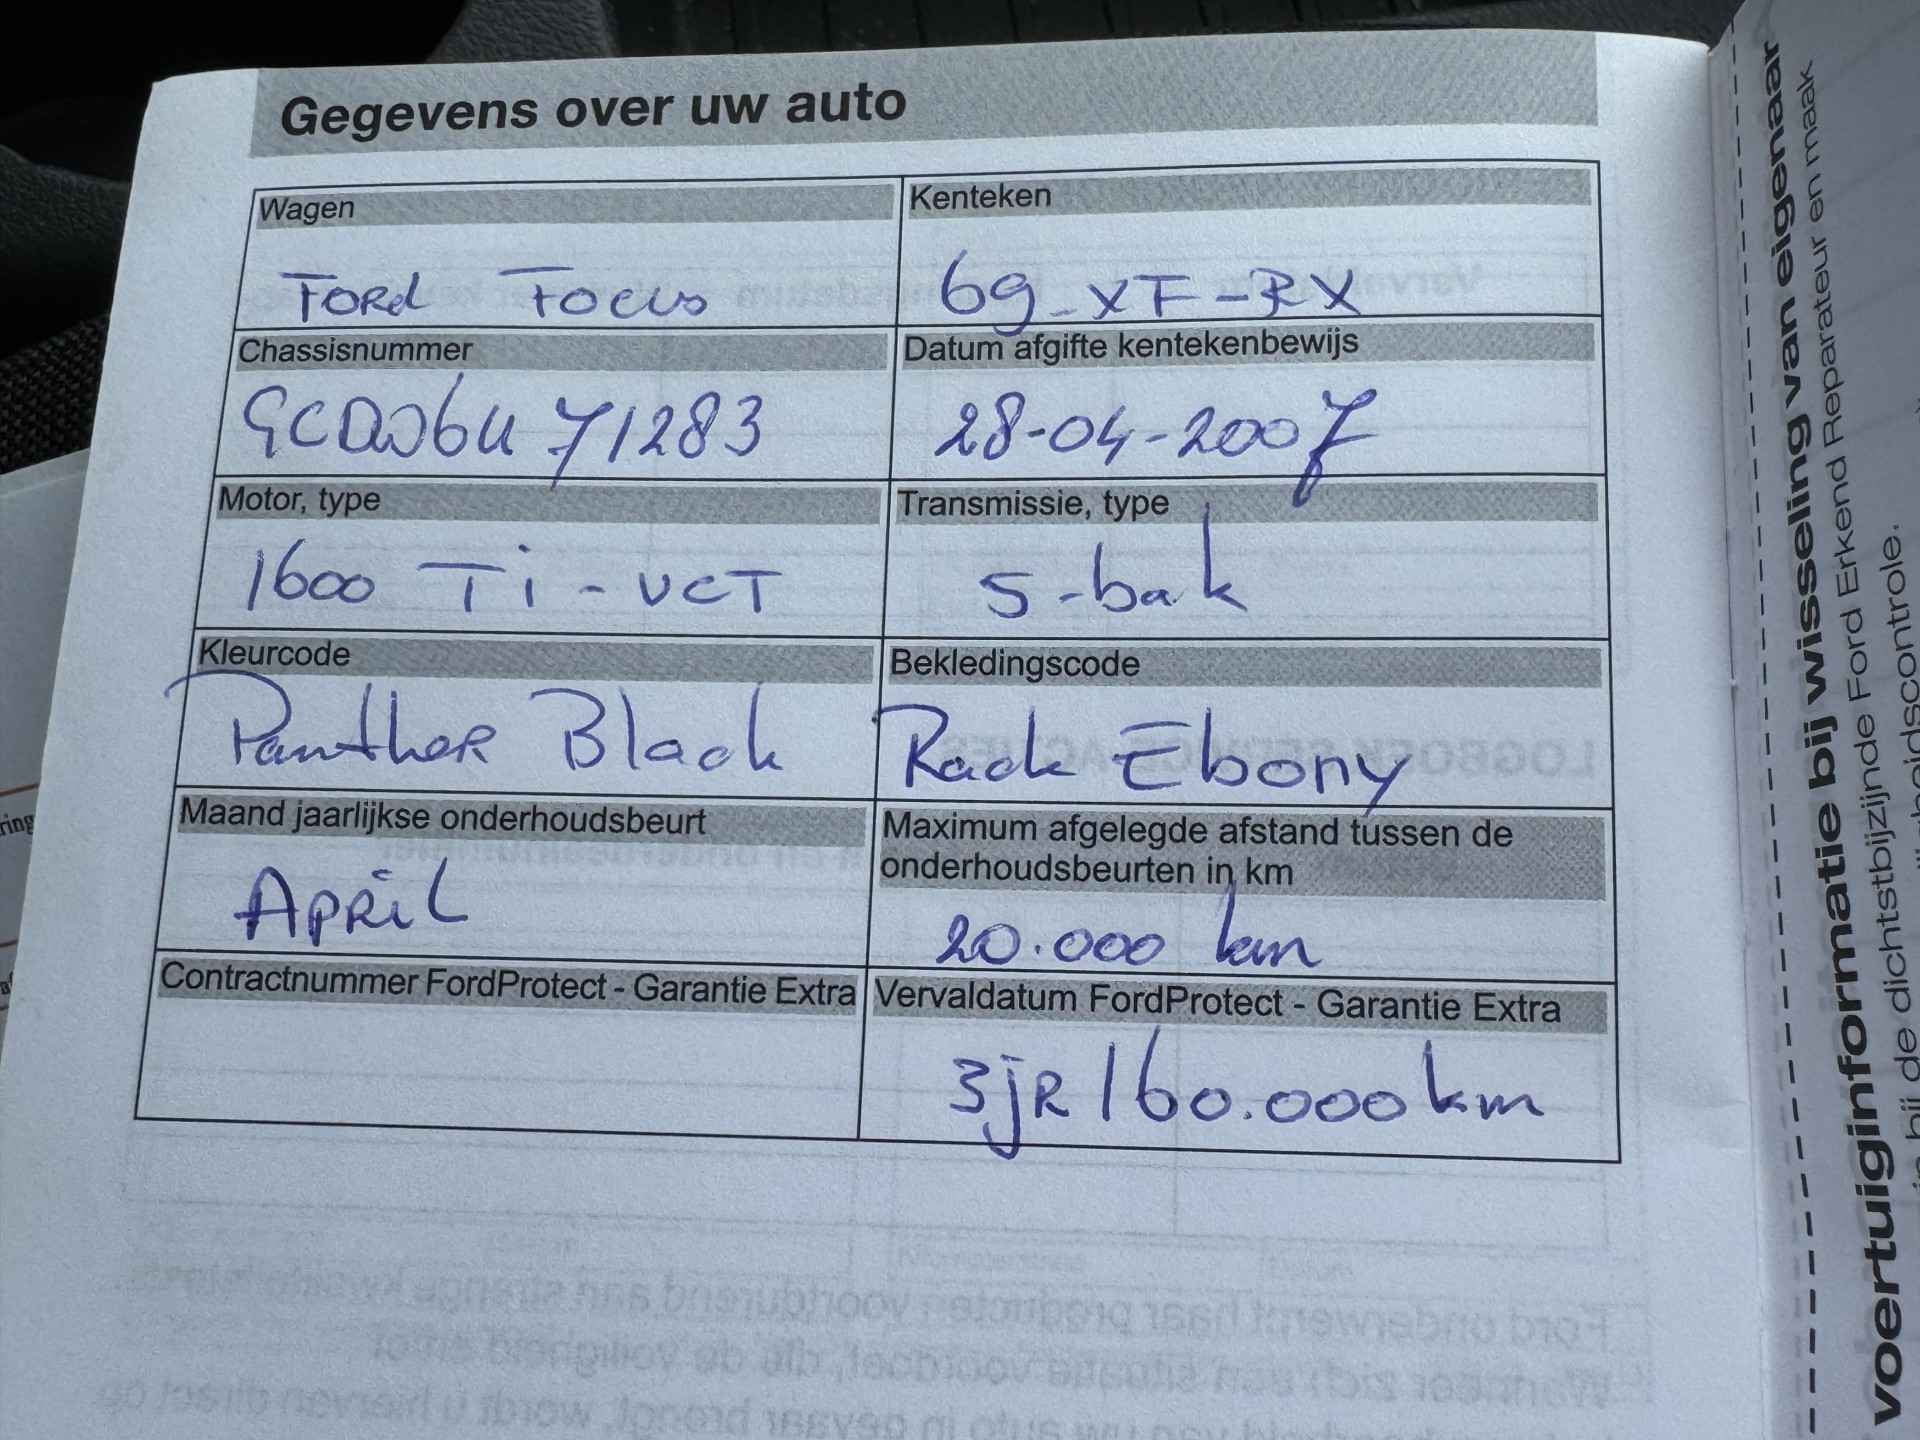 Gegevens over uw auto
Wagen
Ford Focus
Kenteken
69-XT-RX
Chassisnummer
GCDW6U71283
Datum afgifte kentekenbewijs
28-04-2007
Motor, type
1600 Ti-VCT
Transmissie, type
5-bak
Kleurcode
Panther Black
Bekledingscode
Rack Ebony
Maand jaarlijkse onderhoudsbeurt
April
Maximum afgelegde afstand tussen de
onderhoudsbeurten in km
20.000 km
Contractnummer FordProtect - Garantie Extra
Vervaldatum FordProtect - Garantie Extra
3jR/60.000 km
voertuiginformatie bij wisseling van eigenaar
in bij de dichtstbijzijnde Ford Erkend Reparateur en maak